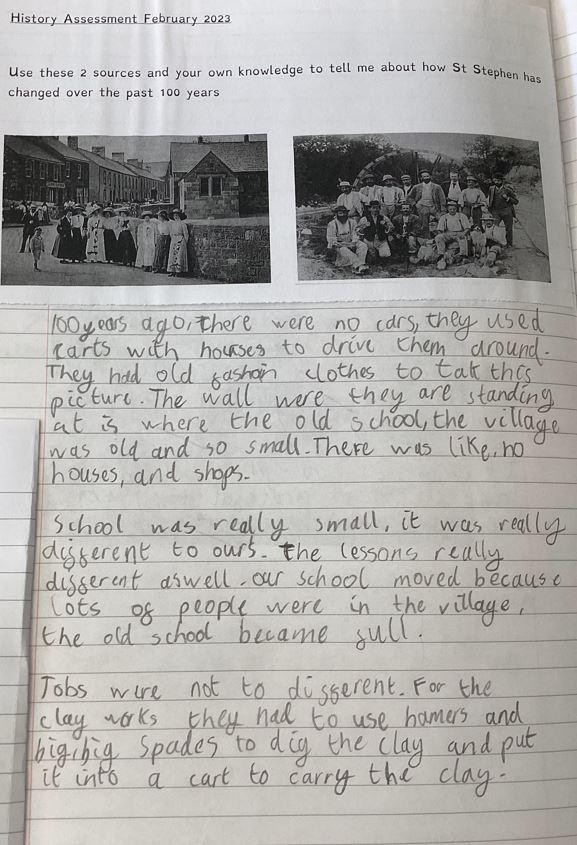 History Assessment February 2023
Use these 2 sources and your own knowledge to tell me about how St Stephen has
changed over the past 100 years
100 years ago, there were no cars, they used
carts with houses to drive them around.
They had old fashoin clothes to tak this
picture. The wall were they are standing
at is where the old school, the village
was old and so small. There was like, no
houses, and shops.
School was really small, it was really
different to ours. the lessons really
different aswell. our school moved because
lots of people were in the village,
the old school became full.
Jobs were not to different. For the
clay works they had to use hamers and
big, big spades to dig the clay and put
it into a cart to carry the clay.